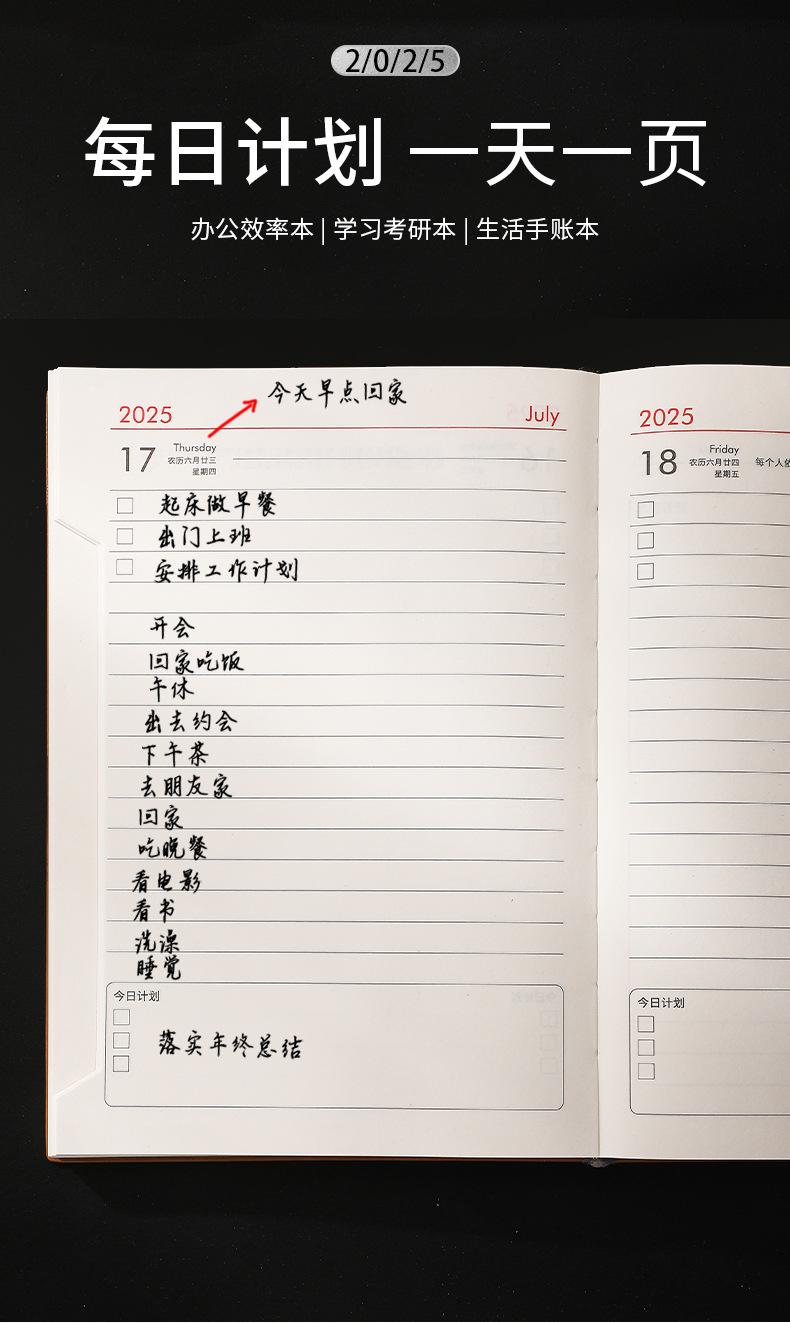 2/0/2/5
每日计划 一天一页
办公效率本 | 学习考研本 | 生活手账本
今天早点回家
2025 July
17 Thursday
农历六月廿三
星期四
起床做早餐
出门上班
安排工作计划
开会
回家吃饭
午休
出去约会
下午茶
去朋友家
回家
吃晚餐
看电影
看书
洗澡
睡觉
今日计划
落实年终总结
2025
18 Friday
农历六月廿四
星期五
每个人
今日计划